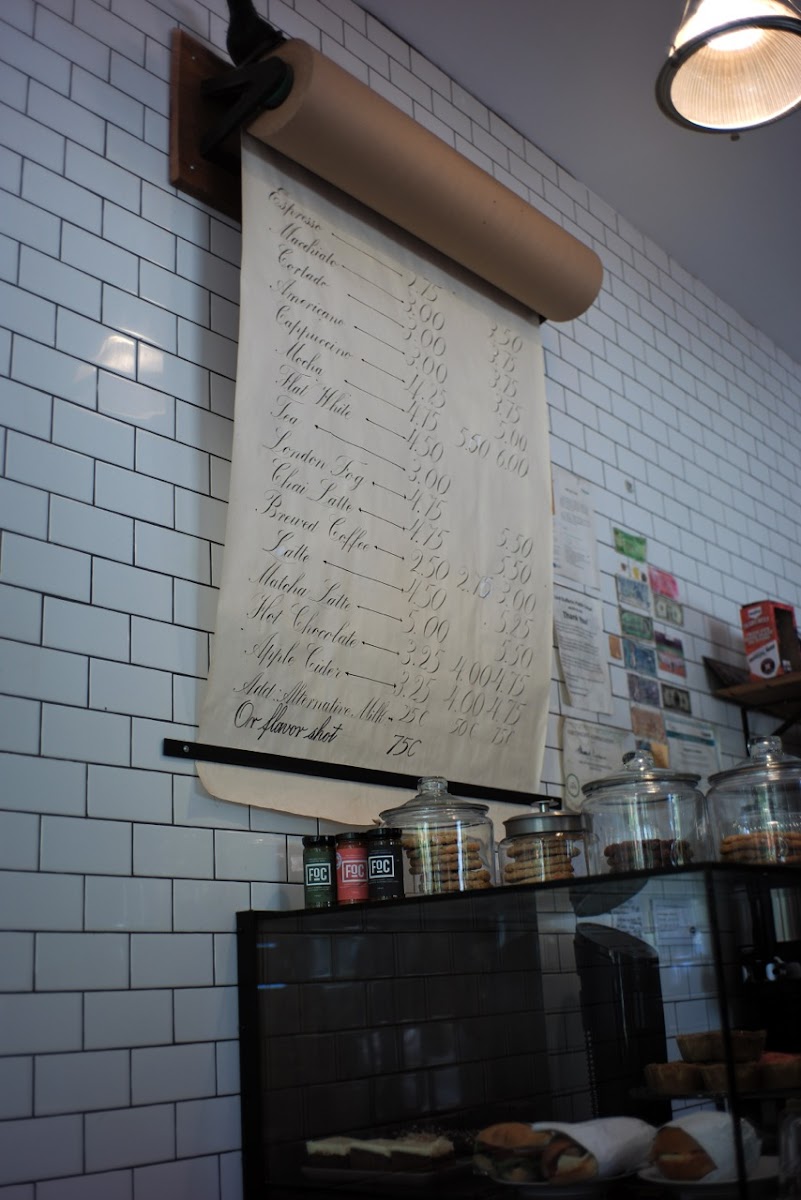 Espresso 3.50
Macchiato 3.00 3.75
Cortado 3.00 3.75
Americano 3.00 3.75
Cappuccino 4.25 5.00
Mocha 4.75 5.50 6.00
Flat White 4.50
Tea 3.00
London Fog 4.75 5.50
Chai Latte 4.75 5.50
Brewed Coffee 2.50 2.75 3.00
Latte 4.50 5.25
Matcha Latte 5.00 5.50
Hot Chocolate 3.25 4.00 4.75
Apple Cider 3.25 4.00 4.75
Add Alternative Milk 25¢ 50¢ 75¢
Or flavor shot 75¢
Thank You!
FOC
FOC
FOC